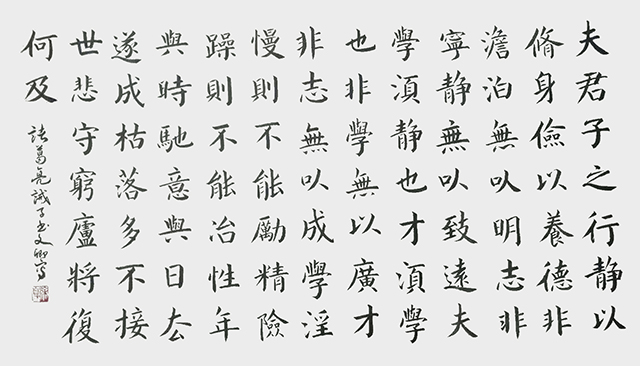 夫君子之行静以
脩身儉以養德非
澹泊無以明志非
寧静無以致遠夫
學湏静也才湏學
也非學無以廣才
非志無以成學淫
慢則不能勵精險
躁則不能冶性年
與時馳意與日厺
遂成枯落多不接
世悲守窮廬將復
何及
諸葛亮誡子書文卿寫